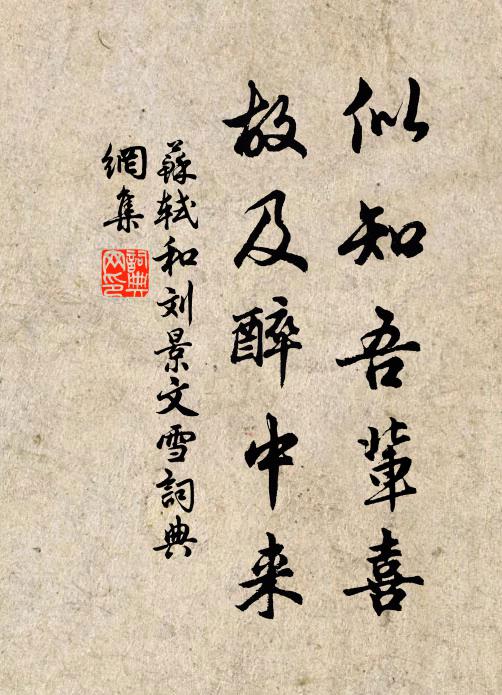 似知吾輩喜
故及醉中来
蘇軾和刘景文雪詞典
網集
詞典
网印